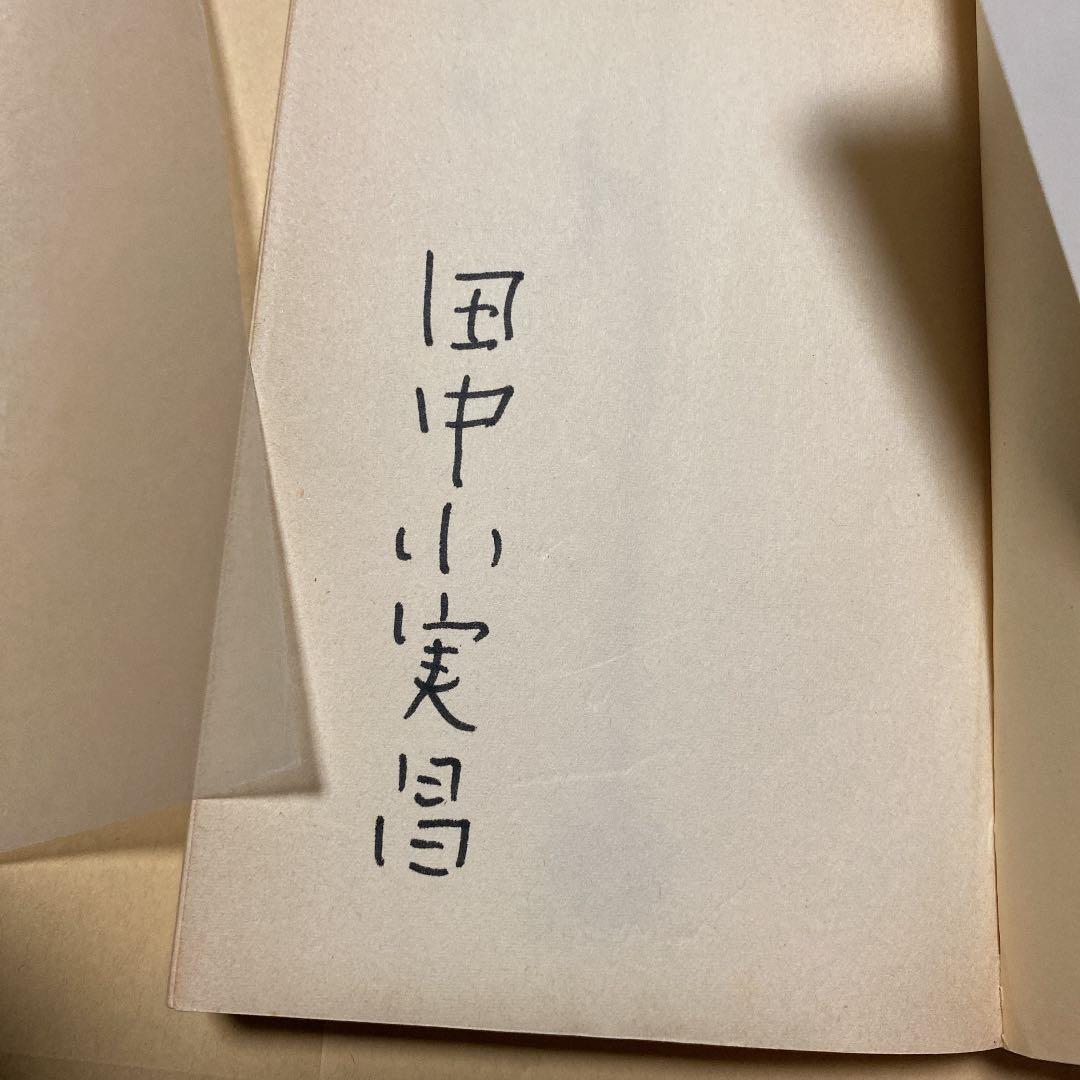 田中小実昌